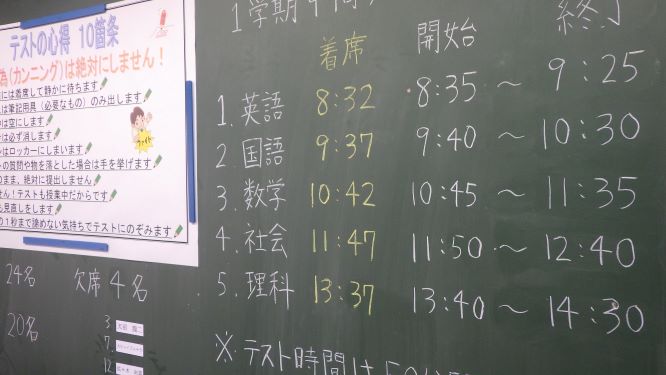 テストの心得 10箇条
為(カンニング)は絶対にしません!
には着席して静かに待ちます
は筆記用具(必要なもの)のみ出します
は空にします
は必ず消します
はロッカーにしまいます
の質問や物を落とした場合は手を挙げます
まま、絶対に提出しません
せん!テストも授業中だからです
も見直しをします
の1秒まで諦めない気持ちでテストにのぞみます
ファイト
1学期
着席 開始 終了
1. 英語 8:32 8:35 〜 9:25
2. 国語 9:37 9:40 〜 10:30
3. 数学 10:42 10:45 〜 11:35
4. 社会 11:47 11:50 〜 12:40
5. 理科 13:37 13:40 〜 14:30
※テスト時間は50
24名 欠席 4名
20名
3
7
12